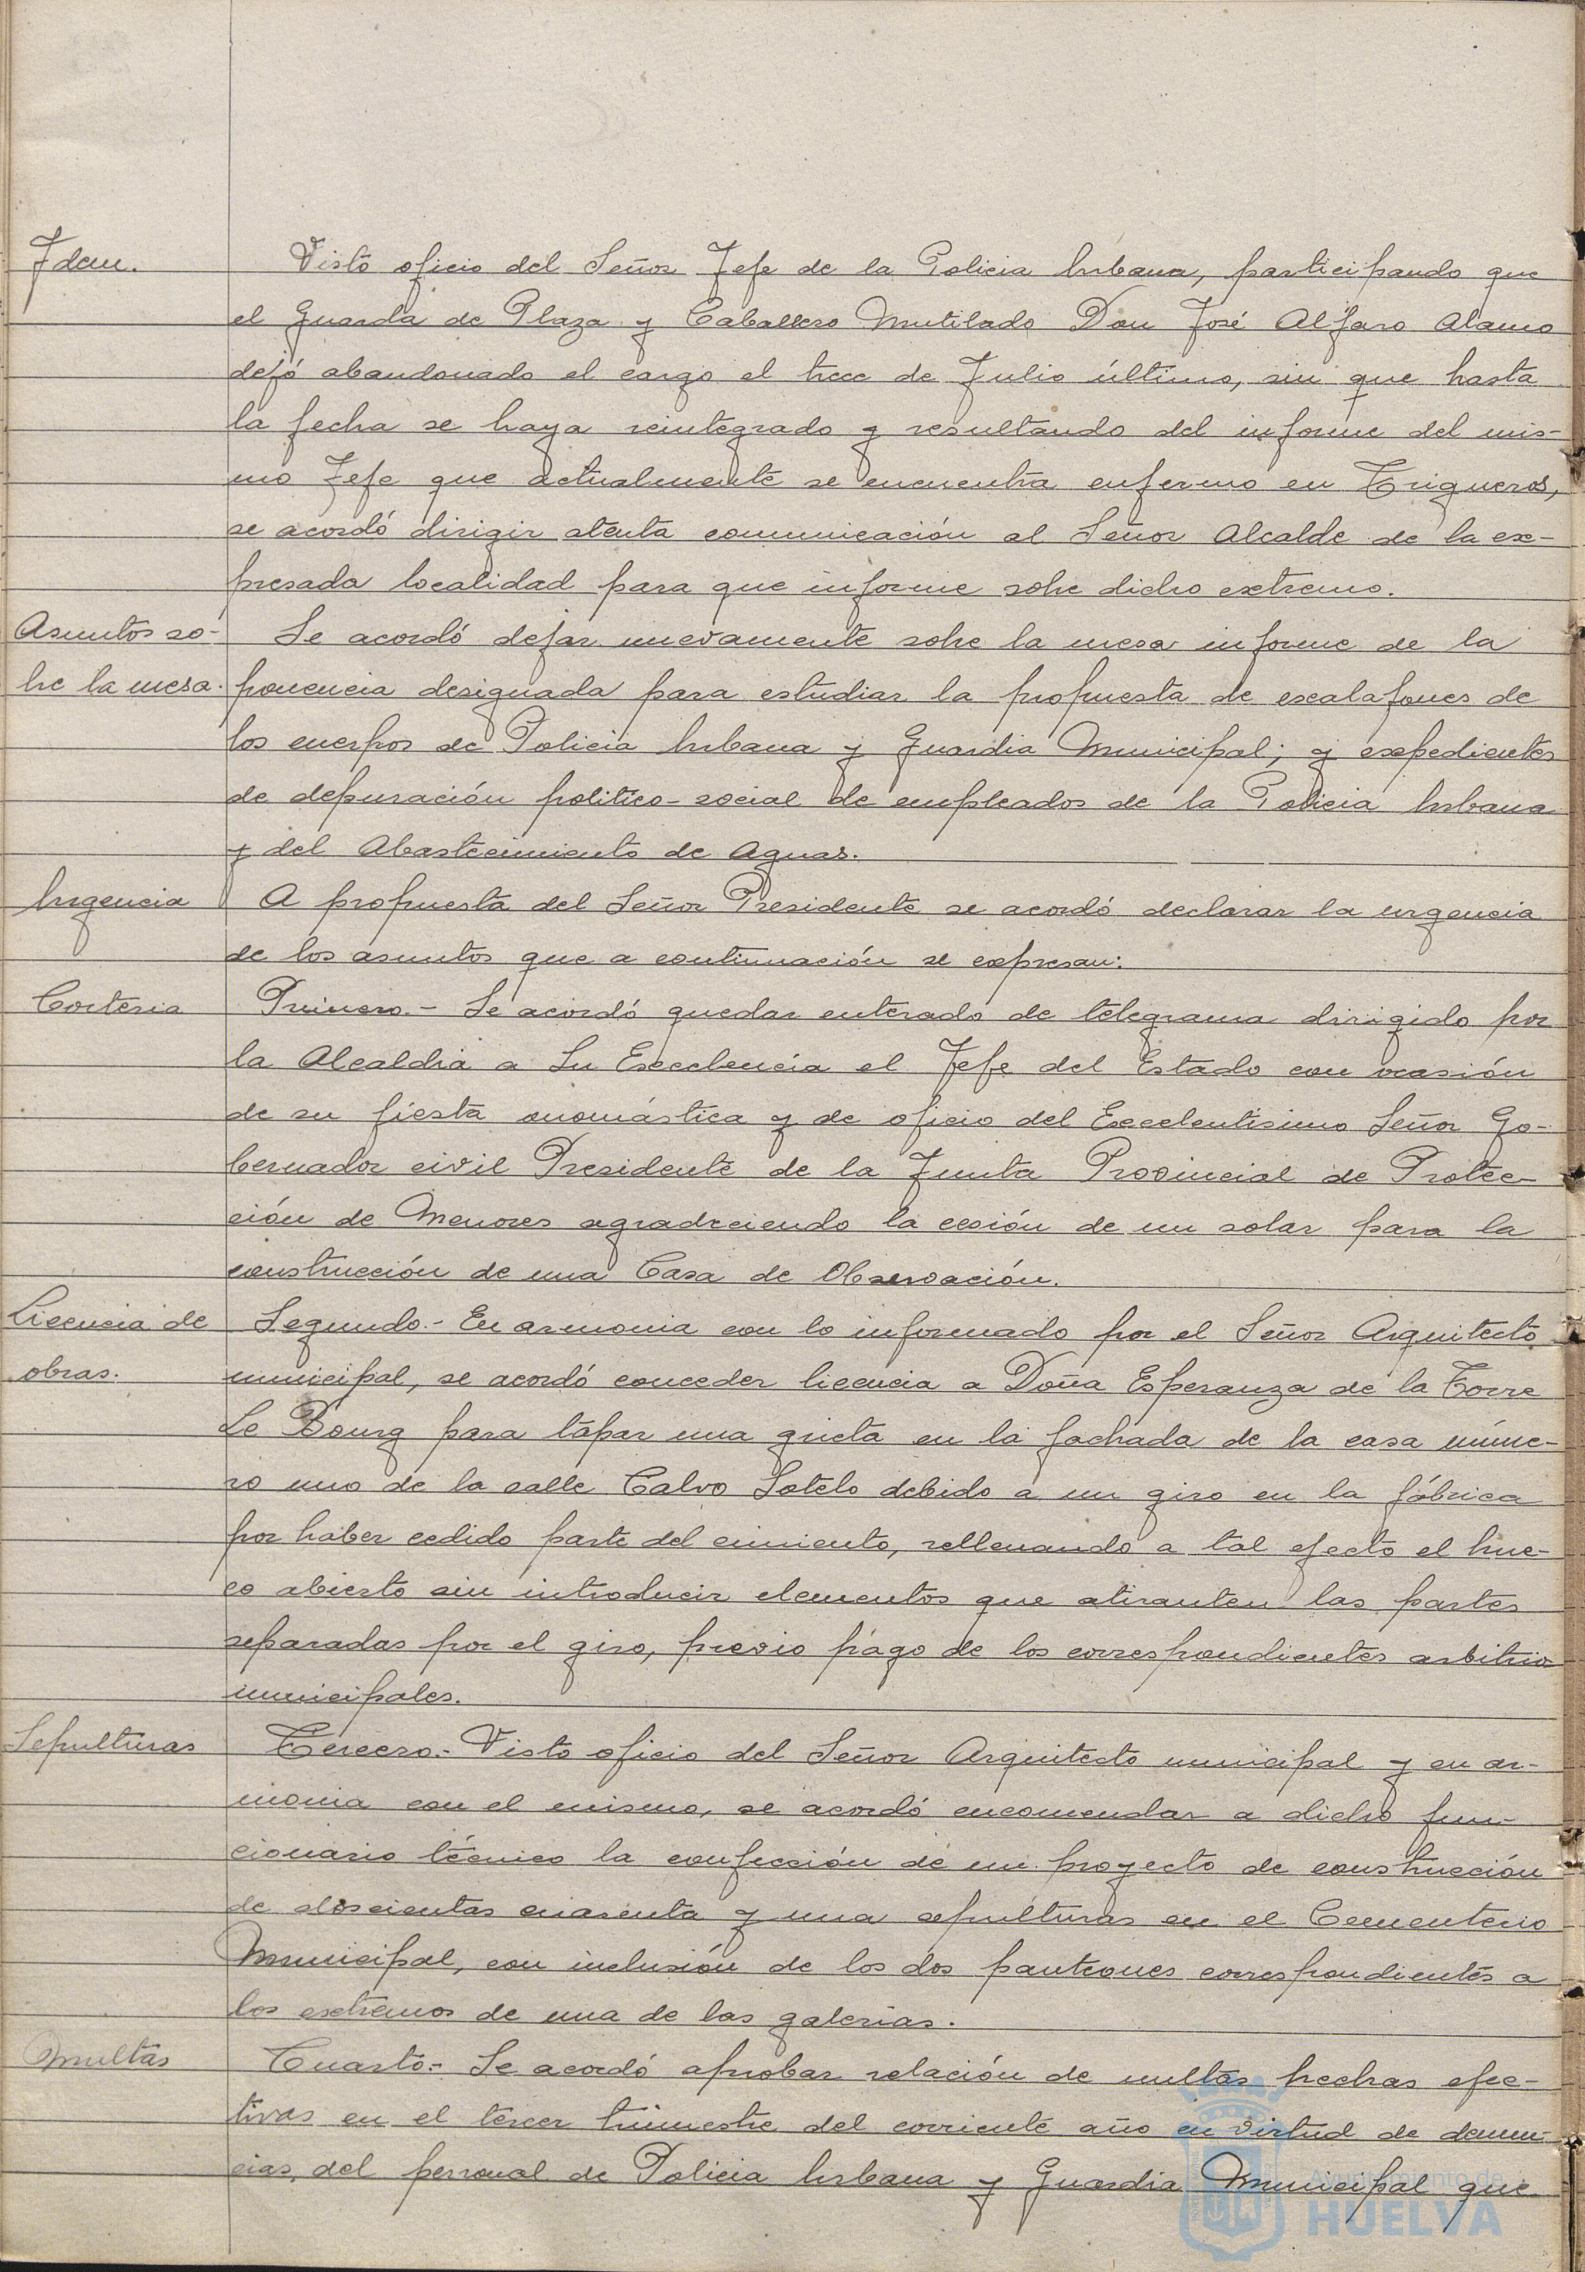 Idem.
Visto oficio del Señor Jefe de la Policia Urbana, participando que
el Guarda de Plaza y Caballero Mutilado Don José Alfaro Alamo
dejó abandonado el cargo el trece de Julio último, sin que hasta
la fecha se haya reintegrado y resultando del informe del mis-
mo Jefe que actualmente se encuentra enfermo en Trigueros,
se acordó dirigir atenta comunicación al Señor Alcalde de la ex-
presada localidad para que informe sobre dicho extremo.
Asuntos so-
bre la mesa.
Se acordó dejar nuevamente sobre la mesa informe de la
ponencia designada para estudiar la propuesta de escalafones de
los cuerpos de Policia Urbana y Guardia Municipal; y expedientes
de depuración politico-social de empleados de la Policia Urbana
y del Abastecimiento de Aguas.
Urgencia
A propuesta del Señor Presidente se acordó declarar la urgencia
de los asuntos que a continuación se expresan:
Cortesia
Primero.- Se acordó quedar enterado de telegrama dirigido por
la Alcaldia a Su Excelencia el Jefe del Estado con ocasión
de su fiesta onomástica y de oficio del Excelentisimo Señor Go-
bernador civil Presidente de la Junta Provincial de Protec-
ción de Menores agradeciendo la cesión de un solar para la
construcción de una Casa de Observación.
Licencia de
obras.
Segundo.- En armonia con lo informado por el Señor Arquitecto
municipal, se acordó conceder licencia a Doña Esperanza de la Torre
Le Bourg para tapar una grieta en la fachada de la casa núme-
ro uno de la calle Calvo Sotelo debido a un giro en la fábrica
por haber cedido parte del cimiento, rellenando a tal efecto el hue-
co abierto sin introducir elementos que atiranten las partes
separadas por el giro, previo pago de los correspondientes arbitrios
municipales.
Sepulturas
Tercero.- Visto oficio del Señor Arquitecto municipal y en ar-
monia con el mismo, se acordó encomendar a dicho fun-
cionario técnico la confección de un proyecto de construcción
de doscientas cuarenta y una sepulturas en el Cementerio
Municipal, con inclusión de los dos panteones correspondientes a
los extremos de una de las galerias.
Multas
Cuarto.- Se acordó aprobar relación de multas hechas efec-
tivas en el tercer trimestre del corriente año en virtud de denun-
cias, del personal de Policia Urbana y Guardia Municipal que
Ayuntamiento de
HUELVA